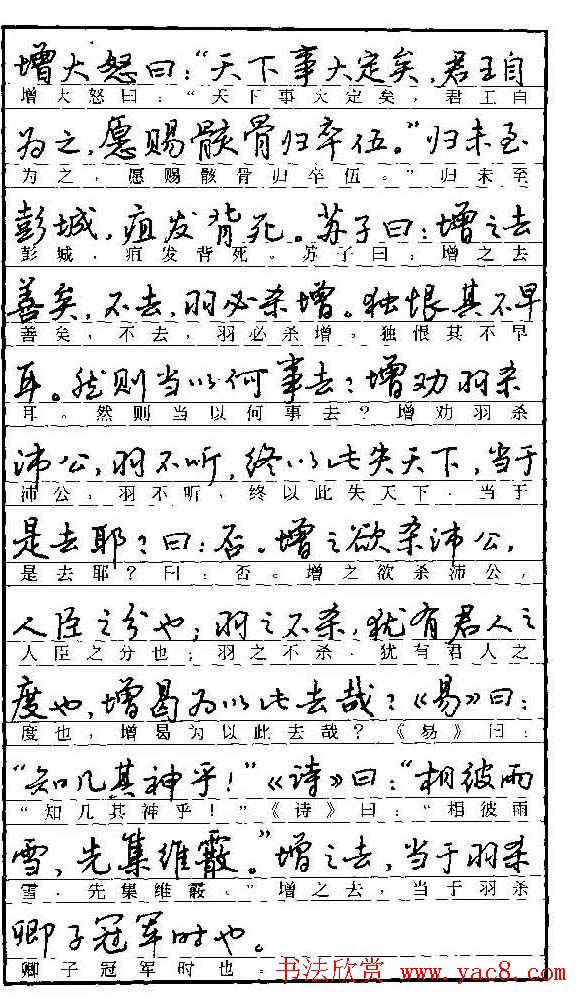 增大怒曰：“天下事大定矣，君王自
增大怒曰：“天下事大定矣，君王自
为之，愿赐骸骨归卒伍。”归未至
为之，愿赐骸骨归卒伍。”归未至
彭城，疽发背死。苏子曰：增之去
彭城，疽发背死。苏子曰：增之去
善矣，不去，羽必杀增。独恨其不早
善矣，不去，羽必杀增。独恨其不早
耳。然则当以何事去？增劝羽杀
耳。然则当以何事去？增劝羽杀
沛公，羽不听，终以此失天下，当于
沛公，羽不听，终以此失天下，当于
是去耶？曰：否。增之欲杀沛公，
是去耶？曰：否。增之欲杀沛公，
人臣之分也；羽之不杀，犹有君人之
人臣之分也；羽之不杀，犹有君人之
度也，增曷为以此去哉？《易》曰：
度也，增曷为以此去哉？《易》曰：
“知几其神乎！”《诗》曰：“相彼雨
“知几其神乎！”《诗》曰：“相彼雨
雪，先集维霰。”增之去，当于羽杀
雪，先集维霰。”增之去，当于羽杀
卿子冠军时也。
卿子冠军时也。
书法欣赏 www.yac8.com